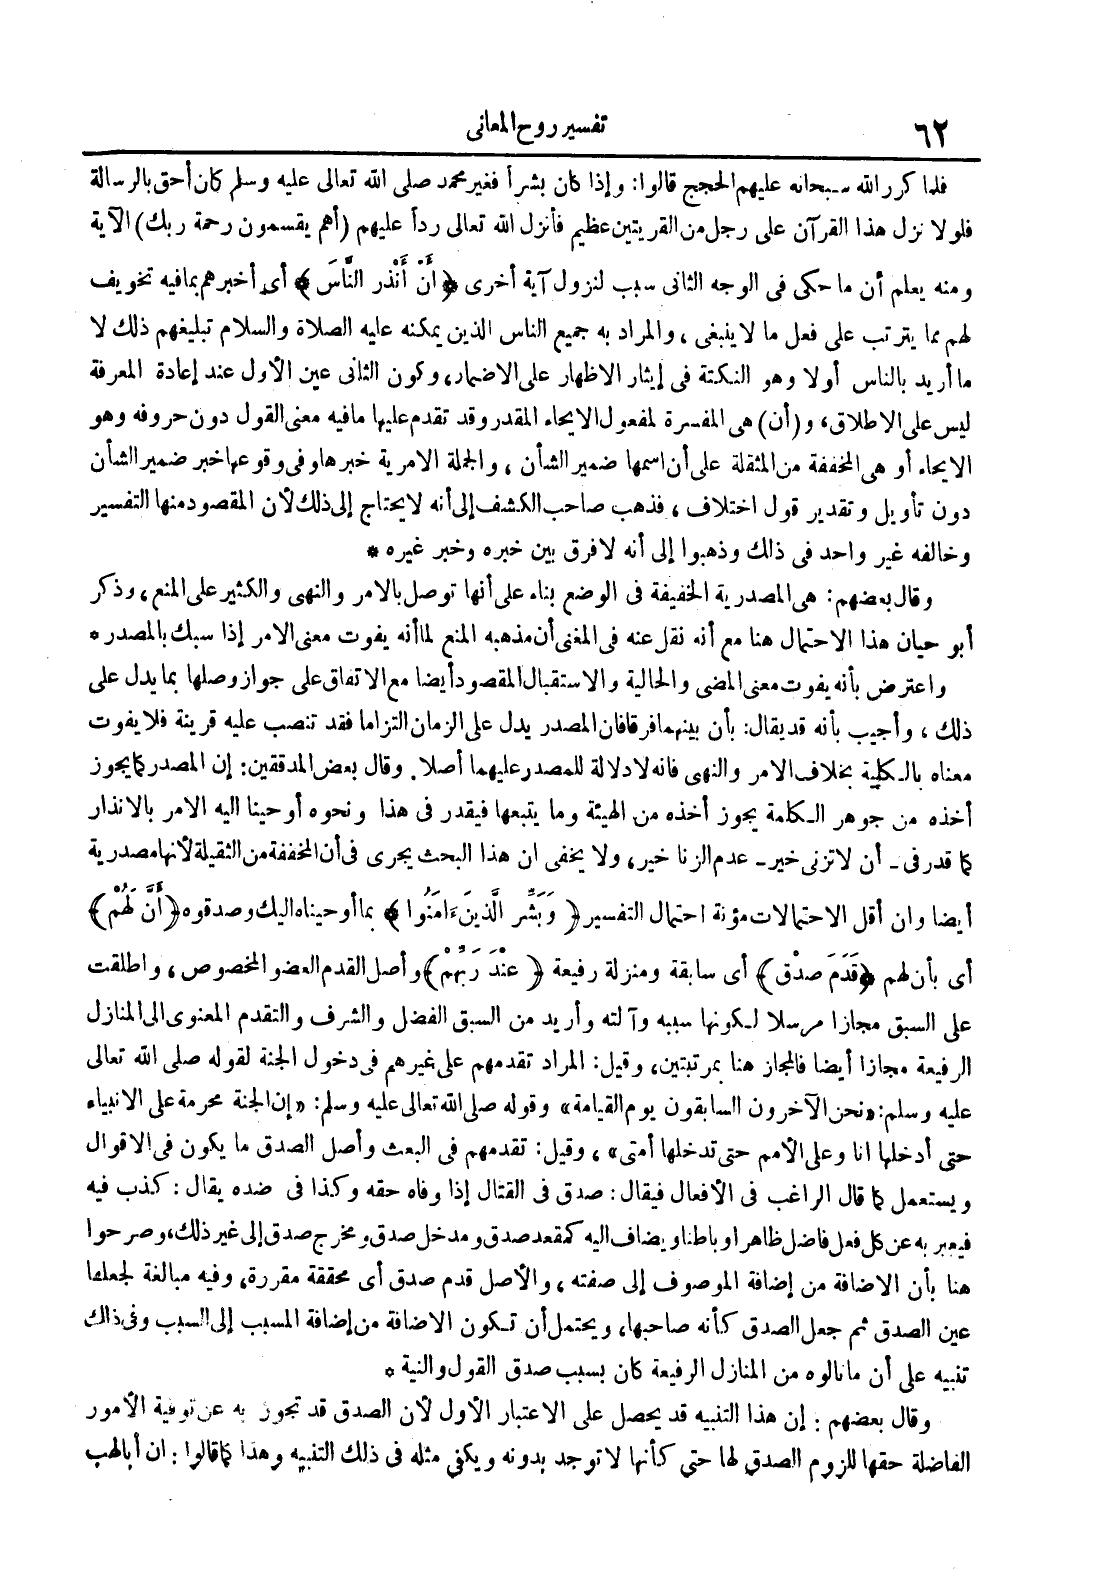 ٦٢
تفسير روح المعانى
فلما كرر الله سبحانه عليهم الحجج قالوا: وإذا كان بشراً فغير محمد صلى الله تعالى عليه وسلم كان أحق بالرسالة
فلولا نزل هذا القرآن على رجل من القريتين عظيم فأنزل الله تعالى رداً عليهم (أهم يقسمون رحمة ربك) الآية
ومنه يعلم أن ما حكى فى الوجه الثانى سبب لنزول آية أخرى ﴿ أَنْ أَنْذر النَّاسَ ﴾ أى أخبرهم بما فيه تخويف
لهم مما يترتب على فعل ما لا ينبغى ، والمراد به جميع الناس الذين يمكنه عليه الصلاة والسلام تبليغهم ذلك لا
ما أريد بالناس أولا وهو النكتة فى إيثار الاظهار على الاضمار، وكون الثانى عين الأول عند إعادة المعرفة
ليس على الاطلاق، و (أن) هى المفسرة لمفعول الايحاء المقدر وقد تقدم عليها ما فيه معنى القول دون حروفه وهو
الايحاء أو هى المخففة من المثقلة على أن اسمها ضمير الشأن ، والجملة الامرية خبرها وفى وقوعها خبر ضمير الشأن
دون تأويل وتقدير قول اختلاف ، فذهب صاحب الكشف إلى أنه لا يحتاج إلى ذلك لأن المقصود منها التفسير
وخالفه غير واحد فى ذلك وذهبوا إلى أنه لافرق بين خبره وخبر غيره *
وقال بعضهم: هى المصدرية الخفيفة فى الوضع بناء على أنها توصل بالامر والنهى والكثير على المنع ، وذكر
أبو حيان هذا الاحتمال هنا مع أنه نقل عنه فى المغنى أن مذهبه المنع لما أنه يفوت معنى الامر إذا سبك بالمصدر *
واعترض بأنه يفوت معنى المضى والحالية والاستقبال المقصود أيضا مع الاتفاق على جواز وصلها بما يدل على
ذلك ، وأجيب بأنه قد يقال: بأن بينهما فرقا فان المصدر يدل على الزمان التزاما فقد تنصب عليه قرينة فلا يفوت
معناه بالكلية بخلاف الامر والنهى فانه لا دلالة للمصدر عليهما أصلا. وقال بعض المدققين: إن المصدر كما يجوز
أخذه من جوهر الكلمة يجوز أخذه من الهيئة وما يتبعها فيقدر فى هذا ونحوه أوحينا اليه الامر بالانذار
كما قدر فى ـ أن لا تزنى خير ـ عدم الزنا خير، ولا يخفى ان هذا البحث يجرى فى أن المخففة من الثقيلة لأنها مصدرية
أيضا وان أقل الاحتمالات مؤنة احتمال التفسير ﴿ وَبَشِّر الَّذينَ ءَامَنُوا ﴾ بما أوحيناه اليك وصدقوه ﴿ أَنَّ لَهُمْ ﴾
أى بأن لهم ﴿ قَدَمَ صدْق ﴾ أى سابقة ومنزلة رفيعة ﴿ عنْدَ رَبِّهُمْ ﴾ وأصل القدم العضو المخصوص ، واطلقت
على السبق مجازا مرسلا لكونها سببه وآلته وأريد من السبق الفضل والشرف والتقدم المعنوى الى المنازل
الرفيعة مجازا أيضا فالمجاز هنا بمرتبتين، وقيل: المراد تقدمهم على غيرهم فى دخول الجنة لقوله صلى الله تعالى
عليه وسلم: «نحن الآخرون السابقون يوم القيامة» وقوله صلى الله تعالى عليه وسلم: «إن الجنة محرمة على الانبياء
حتى أدخلها انا وعلى الأمم حتى تدخلها أمتى» ، وقيل: تقدمهم فى البعث وأصل الصدق ما يكون فى الاقوال
ويستعمل كما قال الراغب فى الأفعال فيقال: صدق فى القتال إذا وفاه حقه وكذا فى ضده يقال: كذب فيه
فيعبر به عن كل فعل فاضل ظاهرا وباطنا ويضاف اليه كمقعد صدق ومدخل صدق ومخرج صدق إلى غير ذلك، وصرحوا
هنا بأن الاضافة من إضافة الموصوف إلى صفته ، والأصل قدم صدق أى محققة مقررة، وفيه مبالغة لجعلها
عين الصدق ثم جعل الصدق كأنه صاحبها، ويحتمل أن تكون الاضافة من إضافة المسبب إلى السبب وفى ذلك
تنبيه على أن ما نالوه من المنازل الرفيعة كان بسبب صدق القول والنية *
وقال بعضهم : إن هذا التنبيه قد يحصل على الاعتبار الأول لأن الصدق قد تجوز به عن توفية الأمور
الفاضلة حقها للزوم الصدق لها حتى كأنها لا توجد بدونه ويكفى مثله فى ذلك التنبيه وهذا كما قالوا : ان أبا لهب